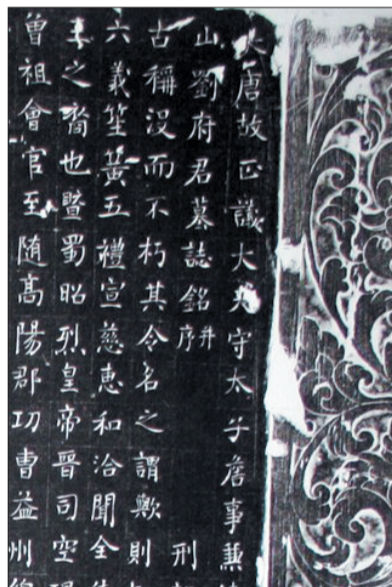 大唐故正議大夫守太子詹事兼
山劉府君墓誌銘并序 刑
古稱没而不朽其令名之謂歟則
六義笙簧五禮宣慈惠和洽聞全
王之裔也暨蜀昭烈皇帝晉司空
曾祖會官至隨髙陽郡功曹益州